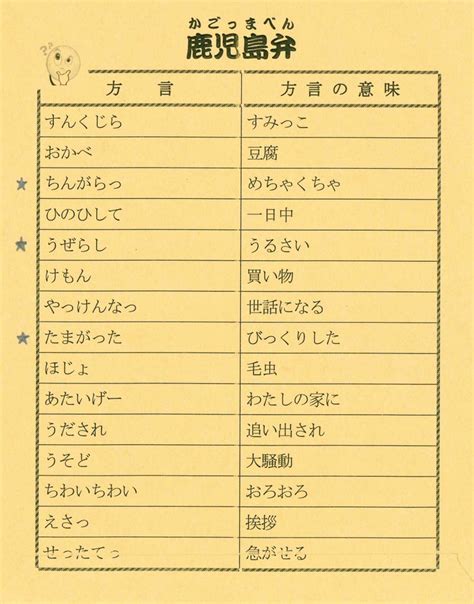 かごっまべん
鹿児島弁
??
方言 方言の意味
すんくじら すみっこ
おかべ 豆腐
★ ちんがらっ めちゃくちゃ
ひのひして 一日中
★ うぜらし うるさい
けもん 買い物
やっけんなっ 世話になる
★ たまがった びっくりした
ほじょ 毛虫
あたいげー わたしの家に
うだされ 追い出され
うそど 大騒動
ちわいちわい おろおろ
えさっ 挨拶
せったてっ 急がせる